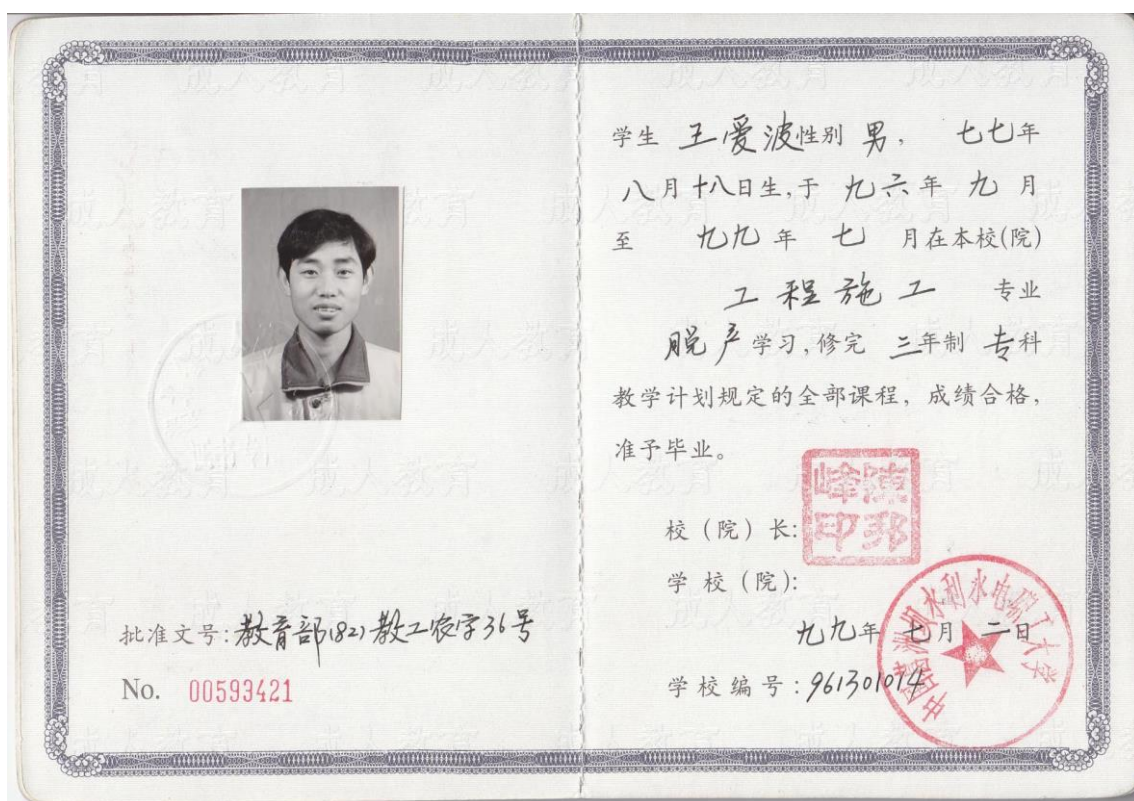 批准文号:教育部(82)教工农字36号
No. 00593421
学生 王爱波性别 男, 七七年
八月十八日生,于 九六年 九 月
至 九九 年 七 月在本校(院)
工程施工 专业
脱产学习,修完 三年制 专科
教学计划规定的全部课程,成绩合格,
准予毕业。
校(院)长:
陳邦
峰印
学校(院):
九九年 七月 二日
学校编号:961301014